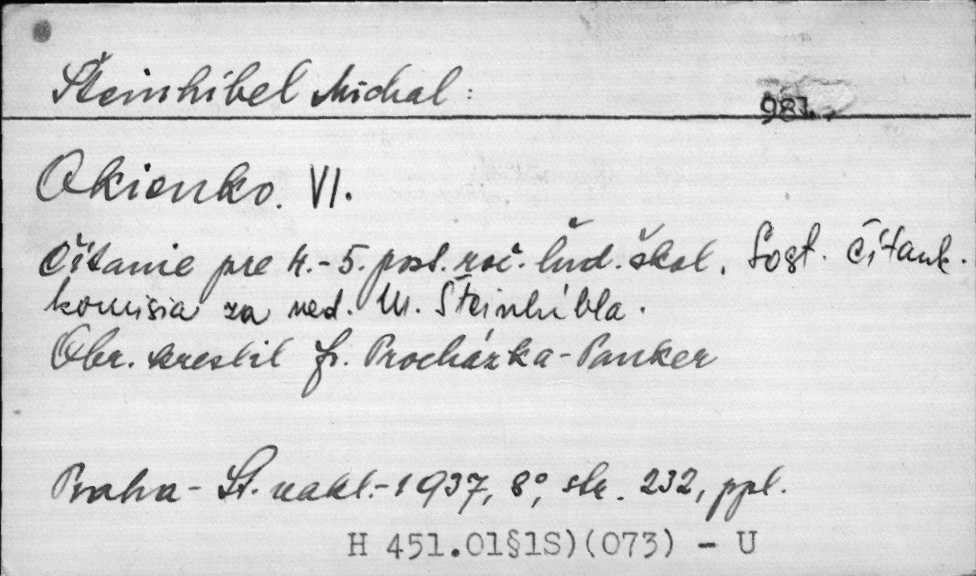 Šteinhíbel Michal:
981.,
Okienko. VI.
Čítanie pre 4.-5. post. roč. ľud. škol. Sost. čítank.
komisia za ved. M. Šteinhíbla.
Obr. kreslil Fr. Procházka-Panker
Praha - Št. nakl. - 1937, 8°, str. 232, ppl.
H 451.01§1S)(073) - U